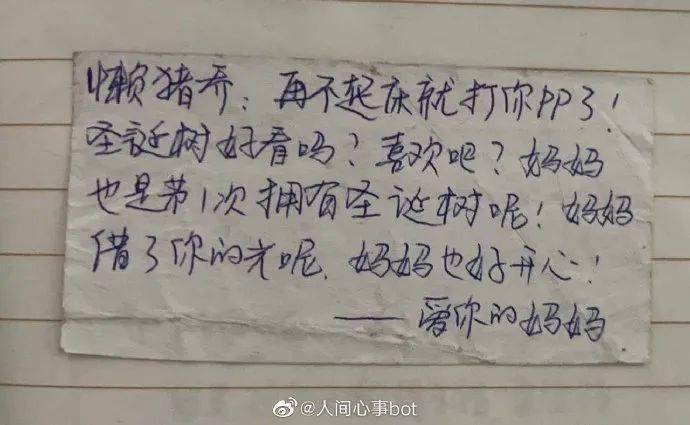 懒猪乔:再不起床就打你PP了!
圣诞树好看吗?喜欢吧?妈妈
也是第1次拥有圣诞树呢!妈妈
借了你的光呢,妈妈也好开心!
——爱你的妈妈
@人间心事bot